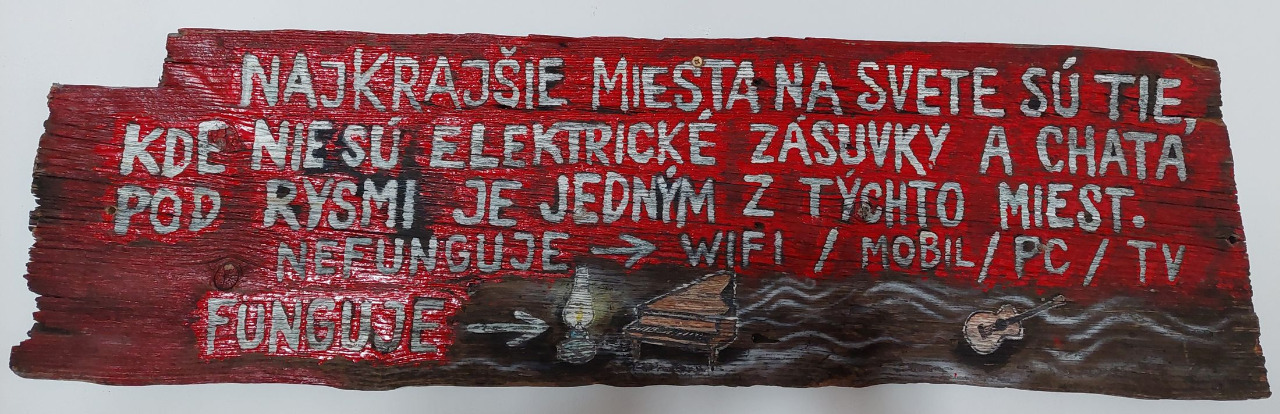 NAJKRAJŠIE MIESTA NA SVETE SÚ TIE,
KDE NIE SÚ ELEKTRICKÉ ZÁSUVKY A CHATA
POD RYSMI JE JEDNÝM Z TÝCHTO MIEST.
NEFUNGUJE → WIFI / MOBIL / PC / TV
FUNGUJE →